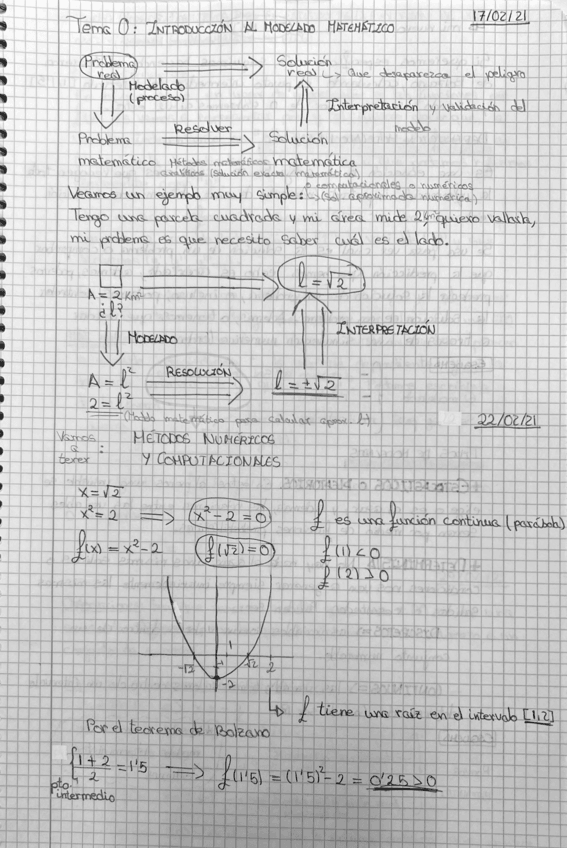 17/02/21
Tema 0: INTRODUCCIÓN AL MODELADO MATEMÁTICO
Problema real
Solución real
Que desaparezca el peligro
Modelado (proceso)
Interpretación y validación del modelo
Resolver
Problema matemático
Solución matemática
Métodos matemáticos
analíticos (solución exacta matemática)
o computacionales o numéricos
(sol. aproximada numérica)
Veamos un ejemplo muy simple:
Tengo una parcela cuadrada y mi área mide 2 quiero vallarla,
mi problema es que necesito saber cuál es el lado.
A = 2 km²
¿l?
l = √2
MODELADO
INTERPRETACIÓN
A = l²
2 = l²
RESOLUCIÓN
l = ±√2
(Modelo matemático para calcular aprox. l)
22/02/21
Vamos a tener:
MÉTODOS NUMÉRICOS
Y COMPUTACIONALES
x = √2
x² = 2 ⟹ x² - 2 = 0
f es una función continua (parábola)
f(x) = x² - 2
f(√2) = 0
f(1) < 0
f(2) > 0
-√2 1 √2 2
-2
f tiene una raíz en el intervalo [1,2]
Por el teorema de Bolzano
1+2/2 = 1'5 ⟹ f(1'5) = (1'5)² - 2 = 0'25 > 0
pto. intermedio